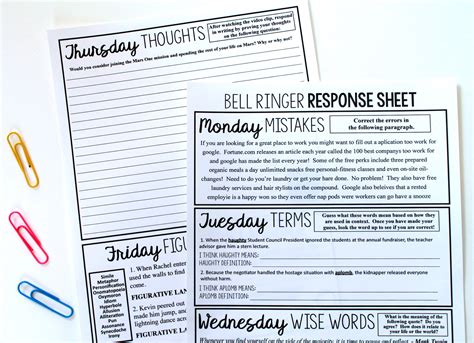 Thursday THOUGHTS
After watching the video clip, respond
in writing by proving your opinion
to the following question:
Would you consider joining the Mars One mission and spending the rest of your life on Mars? Why or why not?
Friday FIGU
Simile
Metaphor
Personification
Onomatopoeia
Oxymoron
Hyperbole
Allusion
Alliteration
Pun
Assonance
Synecdoche
Irony
1. When Rachel enter
used the walls to find
FIGURATIVE LANG
2. Kevin peered from
lightning dance acros
FIGURATIVE LA
BELL RINGER RESPONSE SHEET
Monday MISTAKES
Correct the errors in
the following paragraph.
If you are looking for a great place to work you might want to fill out a aplication too work for
google. Fortune.com releases an article each year called the 100 best companys too work for
and google has made the list every year! Some of the free perks include three prepared
organic meals a day unlimited snacks free personal-fitness classes and even on-site oil-
changes! Need to do you're laundry or get your hare done. No problem! They also have free
laundry services and hair stylists on the compound. Google also beleives that a rested
employe is a happy won sew they even offer nap pods were workers can go have a snooze
Tuesday TERMS
Guess what these words mean based on how they
are used in context. Once you have made your
guess, look the word up to see if you are correct!
1. When the haughty Student Council President ignored the students at the annual fundraiser, the teacher
advisor gave him a stern lecture.
I THINK HAUGHTY MEANS:
HAUGHTY DEFINITION:
2. Because the negotiator handled the hostage situation with aplomb, the kidnapper released everyone
without harm.
I THINK APLOMB MEANS:
APLOMB DEFINITION:
Wednesday WISE WORDS
What is the meaning of the
following quote? Do you
agree? How does it relate to
your life or the world?
Whenever you find yourself on the side of the majority, it is time to pause and reflect. - Mark Twain